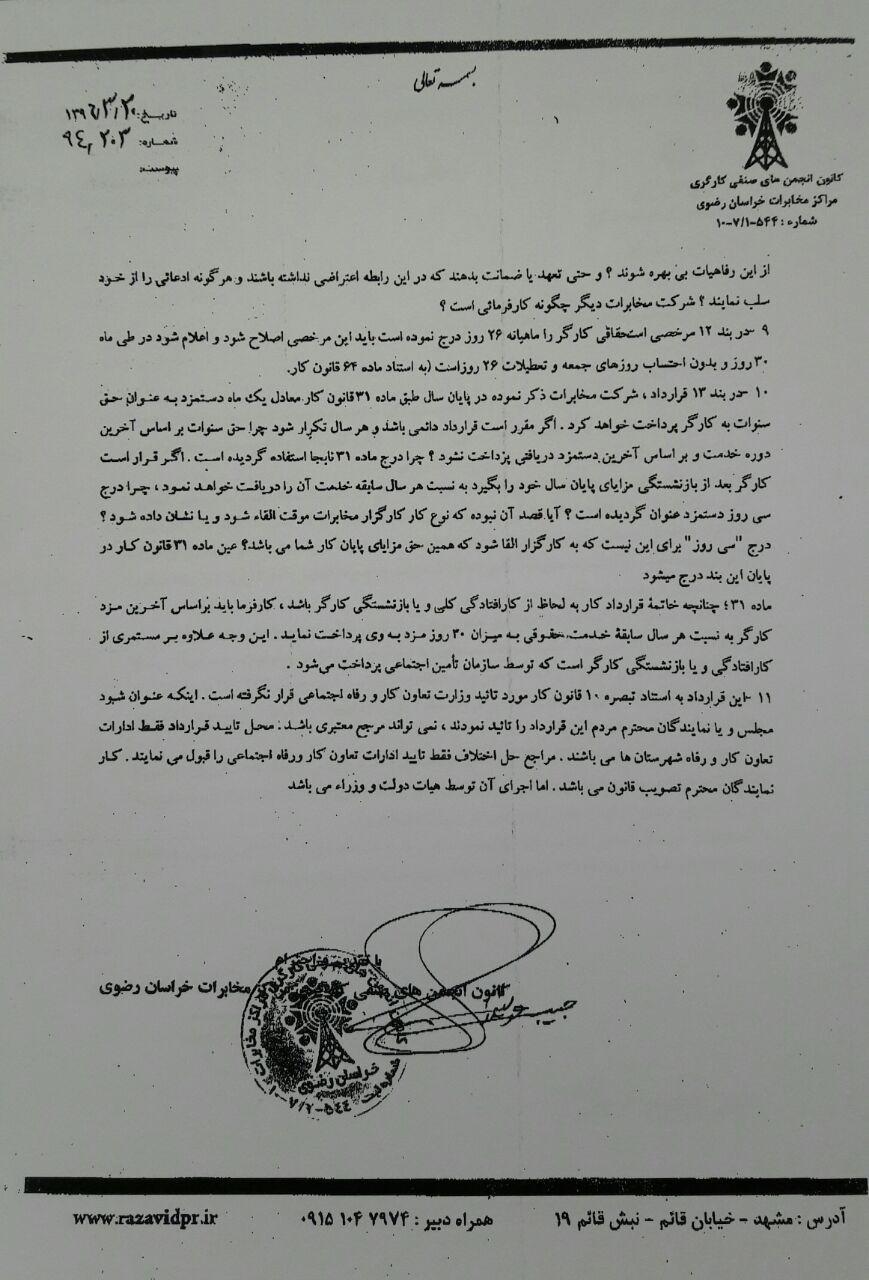 بسمه تعالی
تاریخ: ۱۳۹۶/۳/۲۰
شماره: ۹۴٫۲۰۳
پیوست:
کانون انجمن های صنفی کارگری
مراکز مخابرات خراسان رضوی
شماره : ۵۴۴-۷/۱-۱۰
از این رفاهیات بی بهره شوند ؟ و حتی تعهد یا ضمانت بدهند که در این رابطه اعتراضی نداشته باشند و هرگونه ادعائی را از خود
سلب نمایند ؟ شرکت مخابرات دیگر چگونه کارفرمائی است ؟
۹ -در بند ۱۲ مرخصی استحقاقی کارگر را ماهیانه ۲۶ روز درج نموده است باید این مرخصی اصلاح شود و اعلام شود در طی ماه
۳۰ روز و بدون احتساب روزهای جمعه و تعطیلات ۲۶ روزاست (به استناد ماده ۶۴ قانون کار.
۱۰ -در بند ۱۳ قرارداد ، شرکت مخابرات ذکر نموده در پایان سال طبق ماده ۳۱ قانون کار معادل یک ماه دستمزد به عنوان حق
سنوات به کارگر پرداخت خواهد کرد . اگر مقرر است قرارداد دائمی باشد و هر سال تکرار شود چرا حق سنوات بر اساس آخرین
دوره خدمت و بر اساس آخرین دستمزد دریافتی پرداخت نشود ؟ چرا درج ماده ۳۱ نابجا استفاده گردیده است . اگر قرار است
کارگر بعد از بازنشستگی مزایای پایان سال خود را بگیرد به نسبت هر سال سابقه خدمت آن را دریافت خواهد نمود ، چرا درج
سی روز دستمزد عنوان گردیده است ؟ آیا قصد آن نبوده که نوع کار کارگزار مخابرات موقت القاء شود و یا نشان داده شود ؟
درج "سی روز" برای این نیست که به کارگزار القا شود که همین حق مزایای پایان کار شما می باشد؟ عین ماده ۳۱ قانون کار در
پایان این بند درج میشود
ماده ۳۱؛ چنانچه خاتمهٔ قرارداد کار به لحاظ از کارافتادگی کلی و یا بازنشستگی کارگر باشد ، کارفرما باید براساس آخرین مزد
کارگر به نسبت هر سال سابقهٔ خدمت، حقوقی به میزان ۳۰ روز مزد به وی پرداخت نماید . این وجه علاوه بر مستمری از
کارافتادگی و یا بازنشستگی کارگر است که توسط سازمان تأمین اجتماعی پرداخت می‌شود .
۱۱ -این قرارداد به استناد تبصره ۱۰ قانون کار مورد تائید وزارت تعاون کار و رفاه اجتماعی قرار نگرفته است . اینکه عنوان شود
مجلس و یا نمایندگان محترم مردم این قرارداد را تائید نمودند ، نمی تواند مرجع معتبری باشد : محل تایید قرارداد فقط ادارات
تعاون کار و رفاه شهرستان ها می باشند . مراجع حل اختلاف فقط تایید ادارات تعاون کار ورفاه اجتماعی را قبول می نمایند . کار
نمایندگان محترم تصویب قانون می باشد . اما اجرای آن توسط هیات دولت و وزراء می باشد
کانون انجمن های صنفی مخابرات خراسان رضوی
خراسان رضوی
آدرس : مشهد - خیابان قائم - نبش قائم ۱۹
همراه دبیر : ۷۹۷۴ ۱۰۴ ۰۹۱۵
www.razavidpr.ir